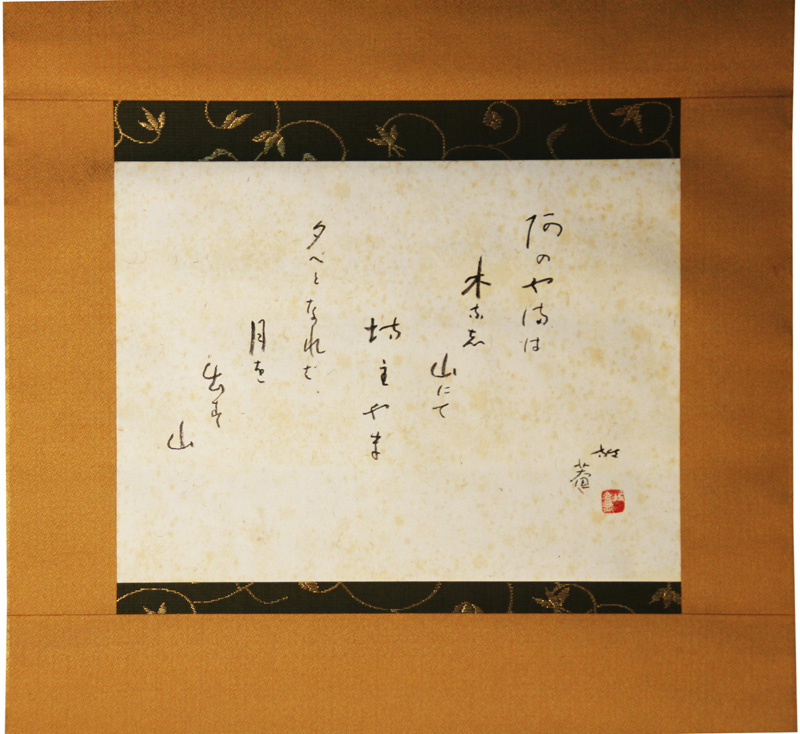 阿のやまは
木なし
山にて
坊主やま
夕べとなれば
月を
出す
山